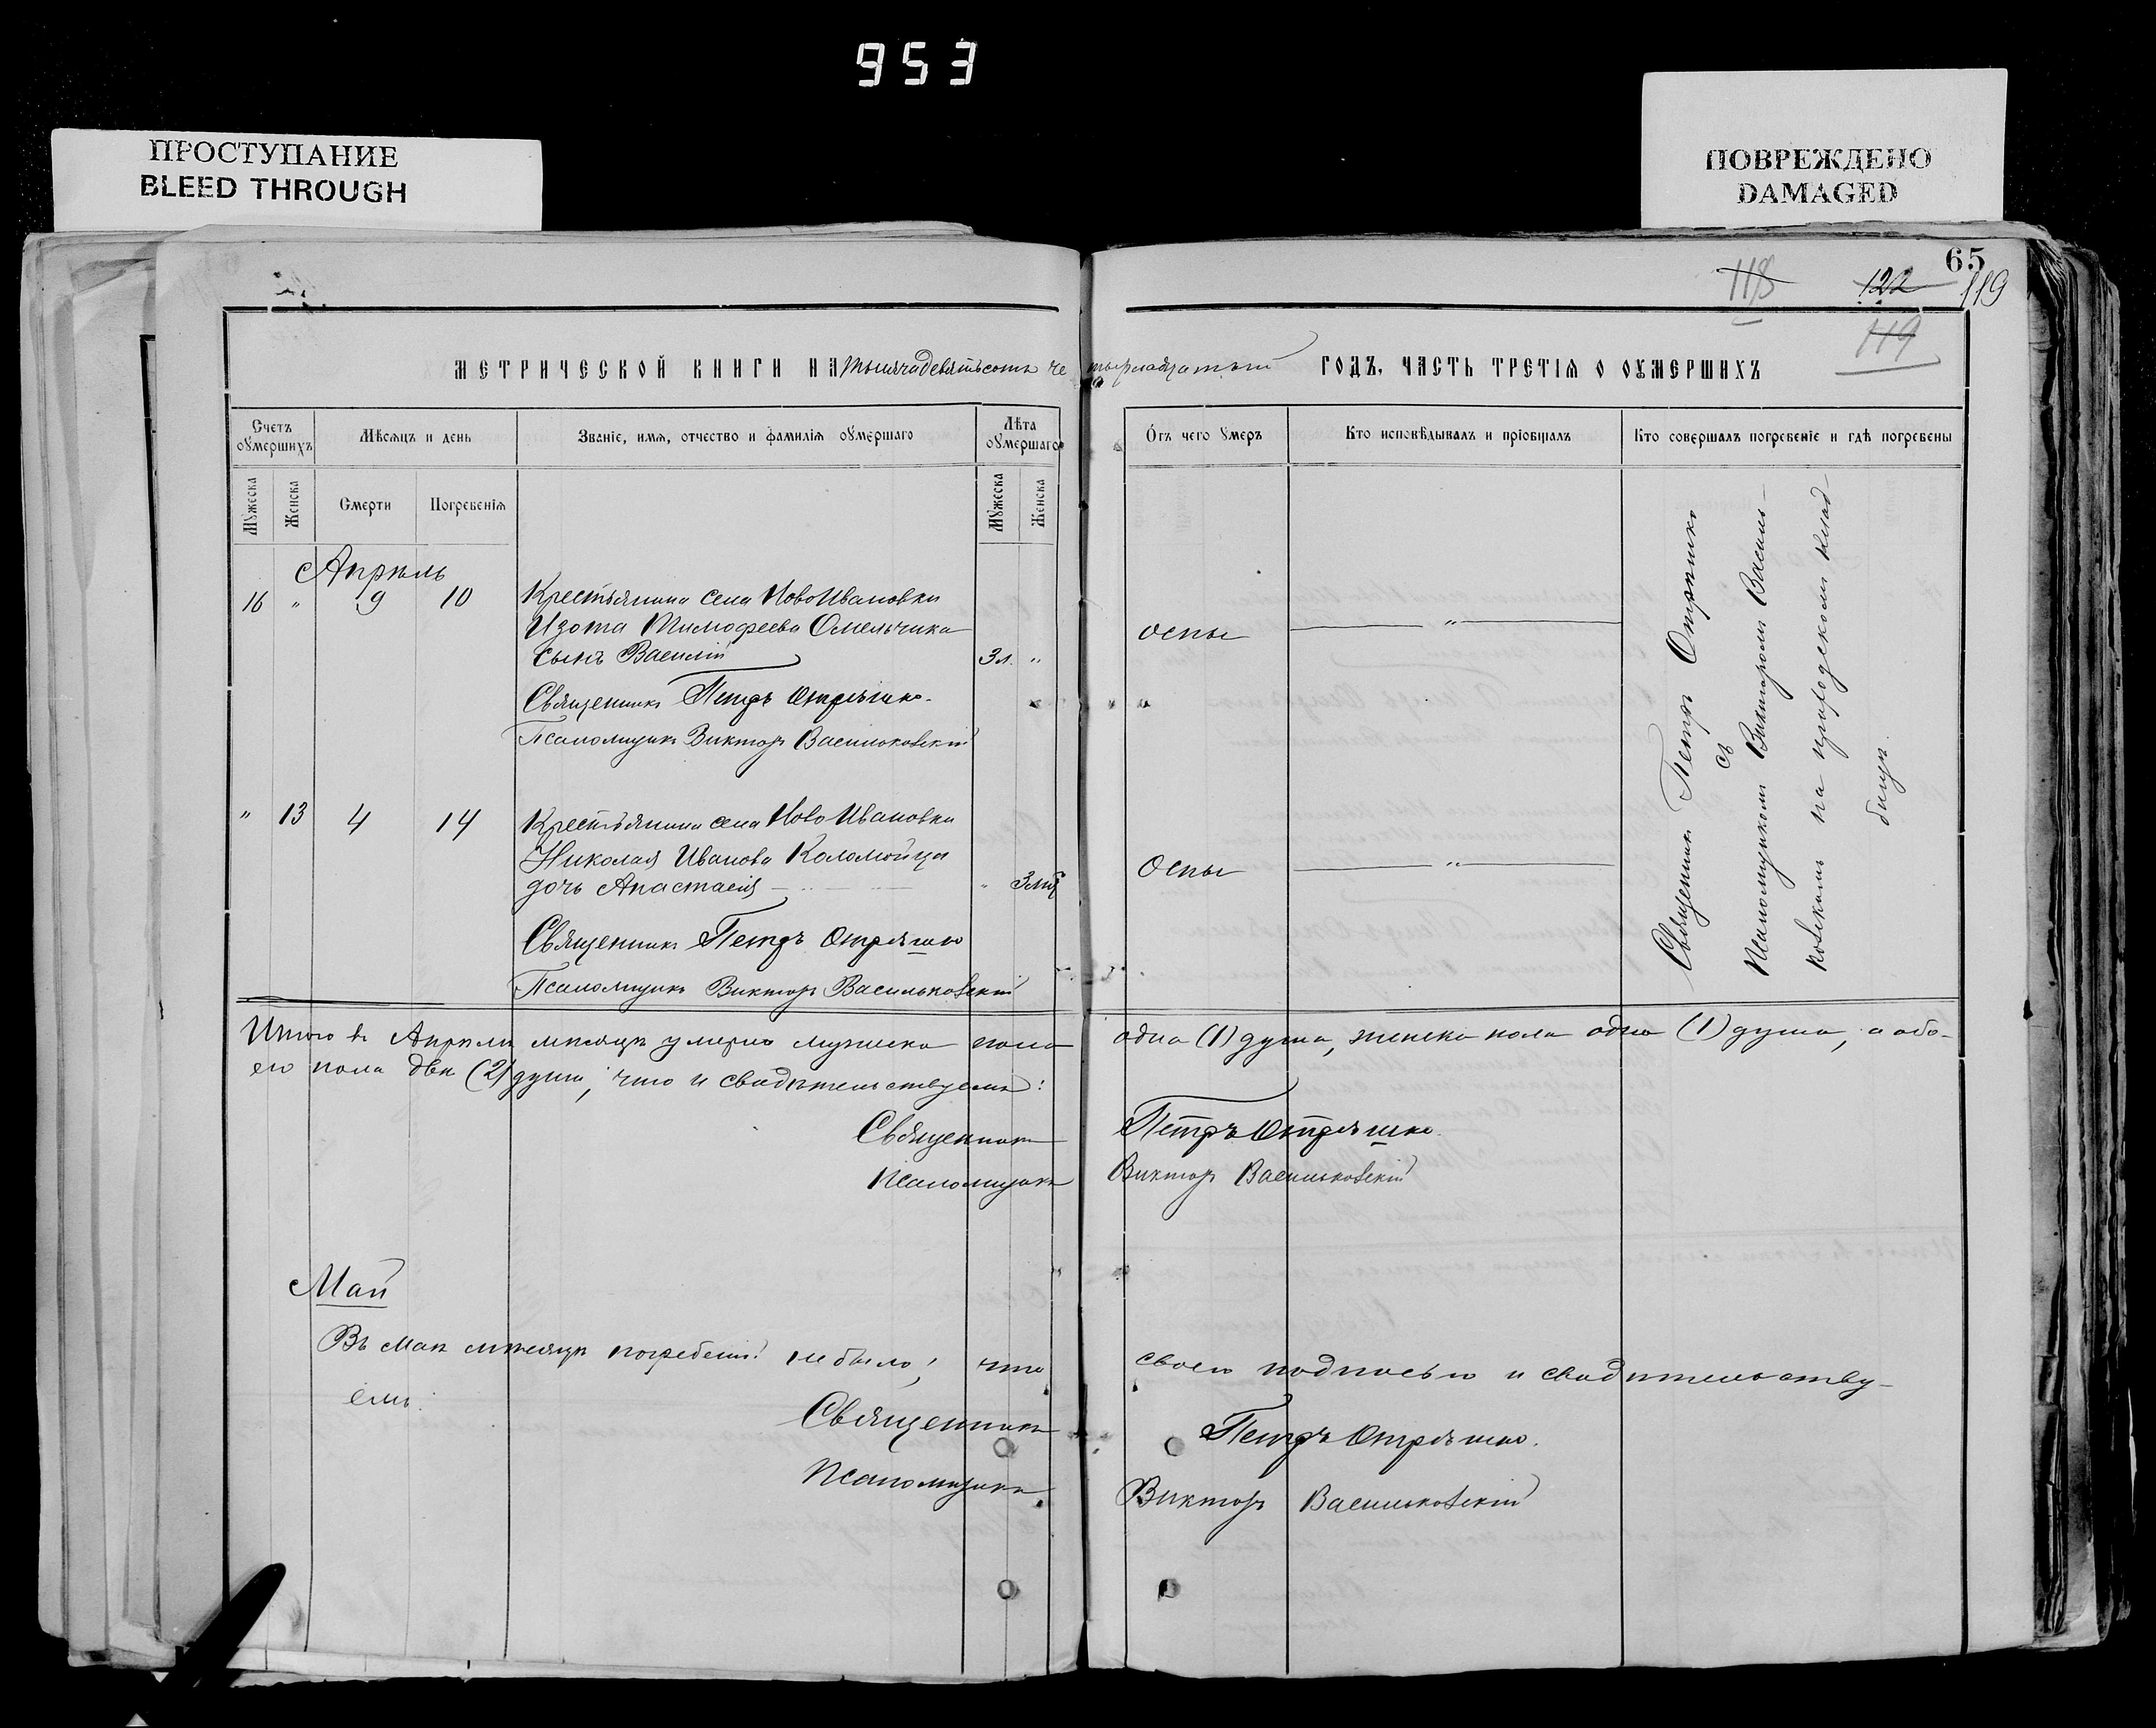 953
ПРОСТУПАНИЕ
BLEED THROUGH
ПОВРЕЖДЕНО
DAMAGED
65
118 122 119
119
МЕТРИЧЕСКОЙ КНИГИ НА тысяча девятьсотъ четырнадцатый ГОДЪ, ЧАСТЬ ТРЕТІЯ О ОУМЕРШИХЪ
Счетъ оумершихъ
Мѣсяцъ и день
Званіе, имя, отчество и фамилія оумершаго
Лѣта оумершаго
Отъ чего умеръ
Кто исповѣдывалъ и пріобщалъ
Кто совершалъ погребеніе и гдѣ погребены
Мужеска
Женска
Смерти
Погребенія
Мужеска
Женска
Апрѣль
16 " 9 10 Крестьянина села НовоИвановки
Изота Тимофеева Омельчика оспы "
сынъ Василій 3 л. "
Священникъ Петръ Отрѣшко.
Псаломщикъ Викторъ Васильковскій
" 13 4 14 Крестьянина села Ново Ивановки
Николая Иванова Коломойца Оспы "
дочь Анастасія "
Священникъ Петръ Отрѣшко
Псаломщикъ Викторъ Васильковскій
Священникъ Петръ Отрѣшко
съ
Псаломщикомъ Викторомъ Василь-
ковскимъ на приходскомъ клад-
бищѣ.
Итого въ Апрѣлѣ мѣсяцѣ умерло мужска пола одна (1) душа, женска пола одна (1) душа, а обо-
его пола двѣ (2) души, что и свидѣтельствуемъ:
Священникъ Петръ Отрѣшко.
Псаломщикъ Викторъ Васильковскій
Май
Въ Маѣ мѣсяцѣ погребеній не было, что своею подписью и свидѣтельству-
емъ:
Священникъ Петръ Отрѣшко.
Псаломщикъ Викторъ Васильковскій